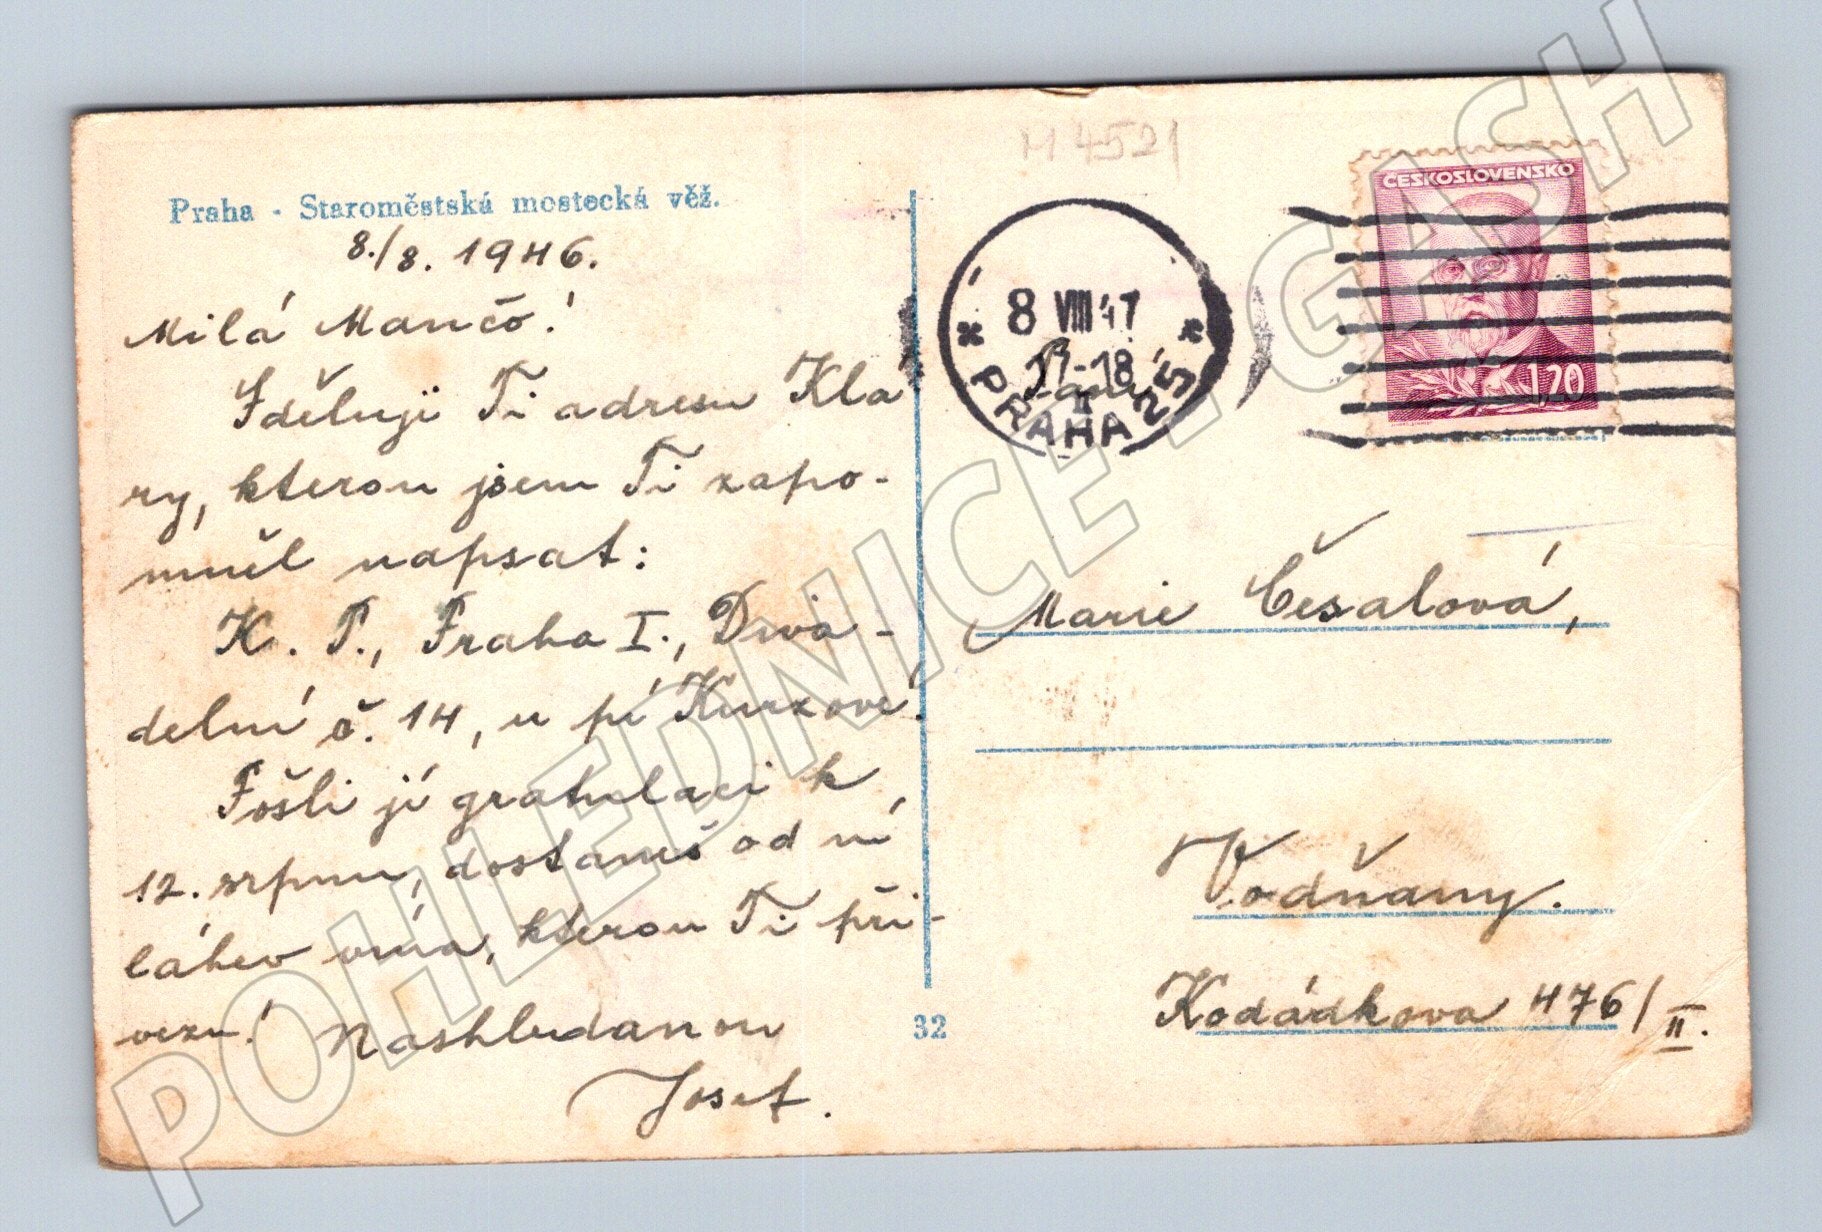 Praha - Staroměstská mostecká věž.
8./8. 1946.
Milá Mančo!
Sděluji Ti adresu Kla
ry, kterou jsem Ti zapo-
mněl napsat:
K. P., Praha I., Diva-
delní č. 14, u pí Kurzové.
Pošli jí gratulaci k
12. srpnu, dostaneš od ní
láhev vína, kterou Ti při-
vezu! Nashledanou
Josef.
32
M 4521
8 VIII 47
17-18
PRAHA 25
ČESKOSLOVENSKO
1,20
Marie Češalová,
Vodňany.
Kodádkova 476/II.
POHLEDNICE GASH